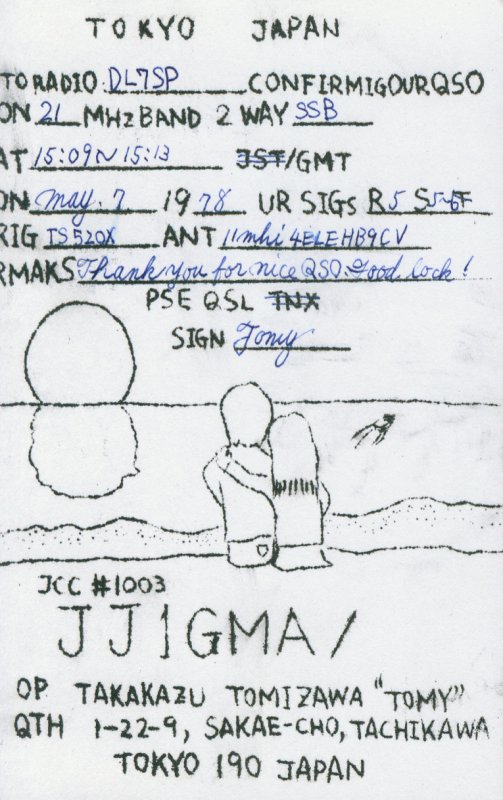 TOKYO JAPAN
TO RADIO DL7SP CONFIRMIG OUR QSO
ON 21 MHz BAND 2 WAY SSB
AT 15:09~15:13 JST/GMT
ON may. 7 1978 UR SIGs R5 S5~6F
RIG TS520X ANT 11mhi 4ELEHB9CV
RMAKS Thank you for nice QSO. Good lock!
PSE QSL TNX
SIGN Tomy
JCC #1003
JJ1GMA/
OP TAKAKAZU TOMIZAWA "TOMY"
QTH 1-22-9, SAKAE-CHO, TACHIKAWA
TOKYO 190 JAPAN